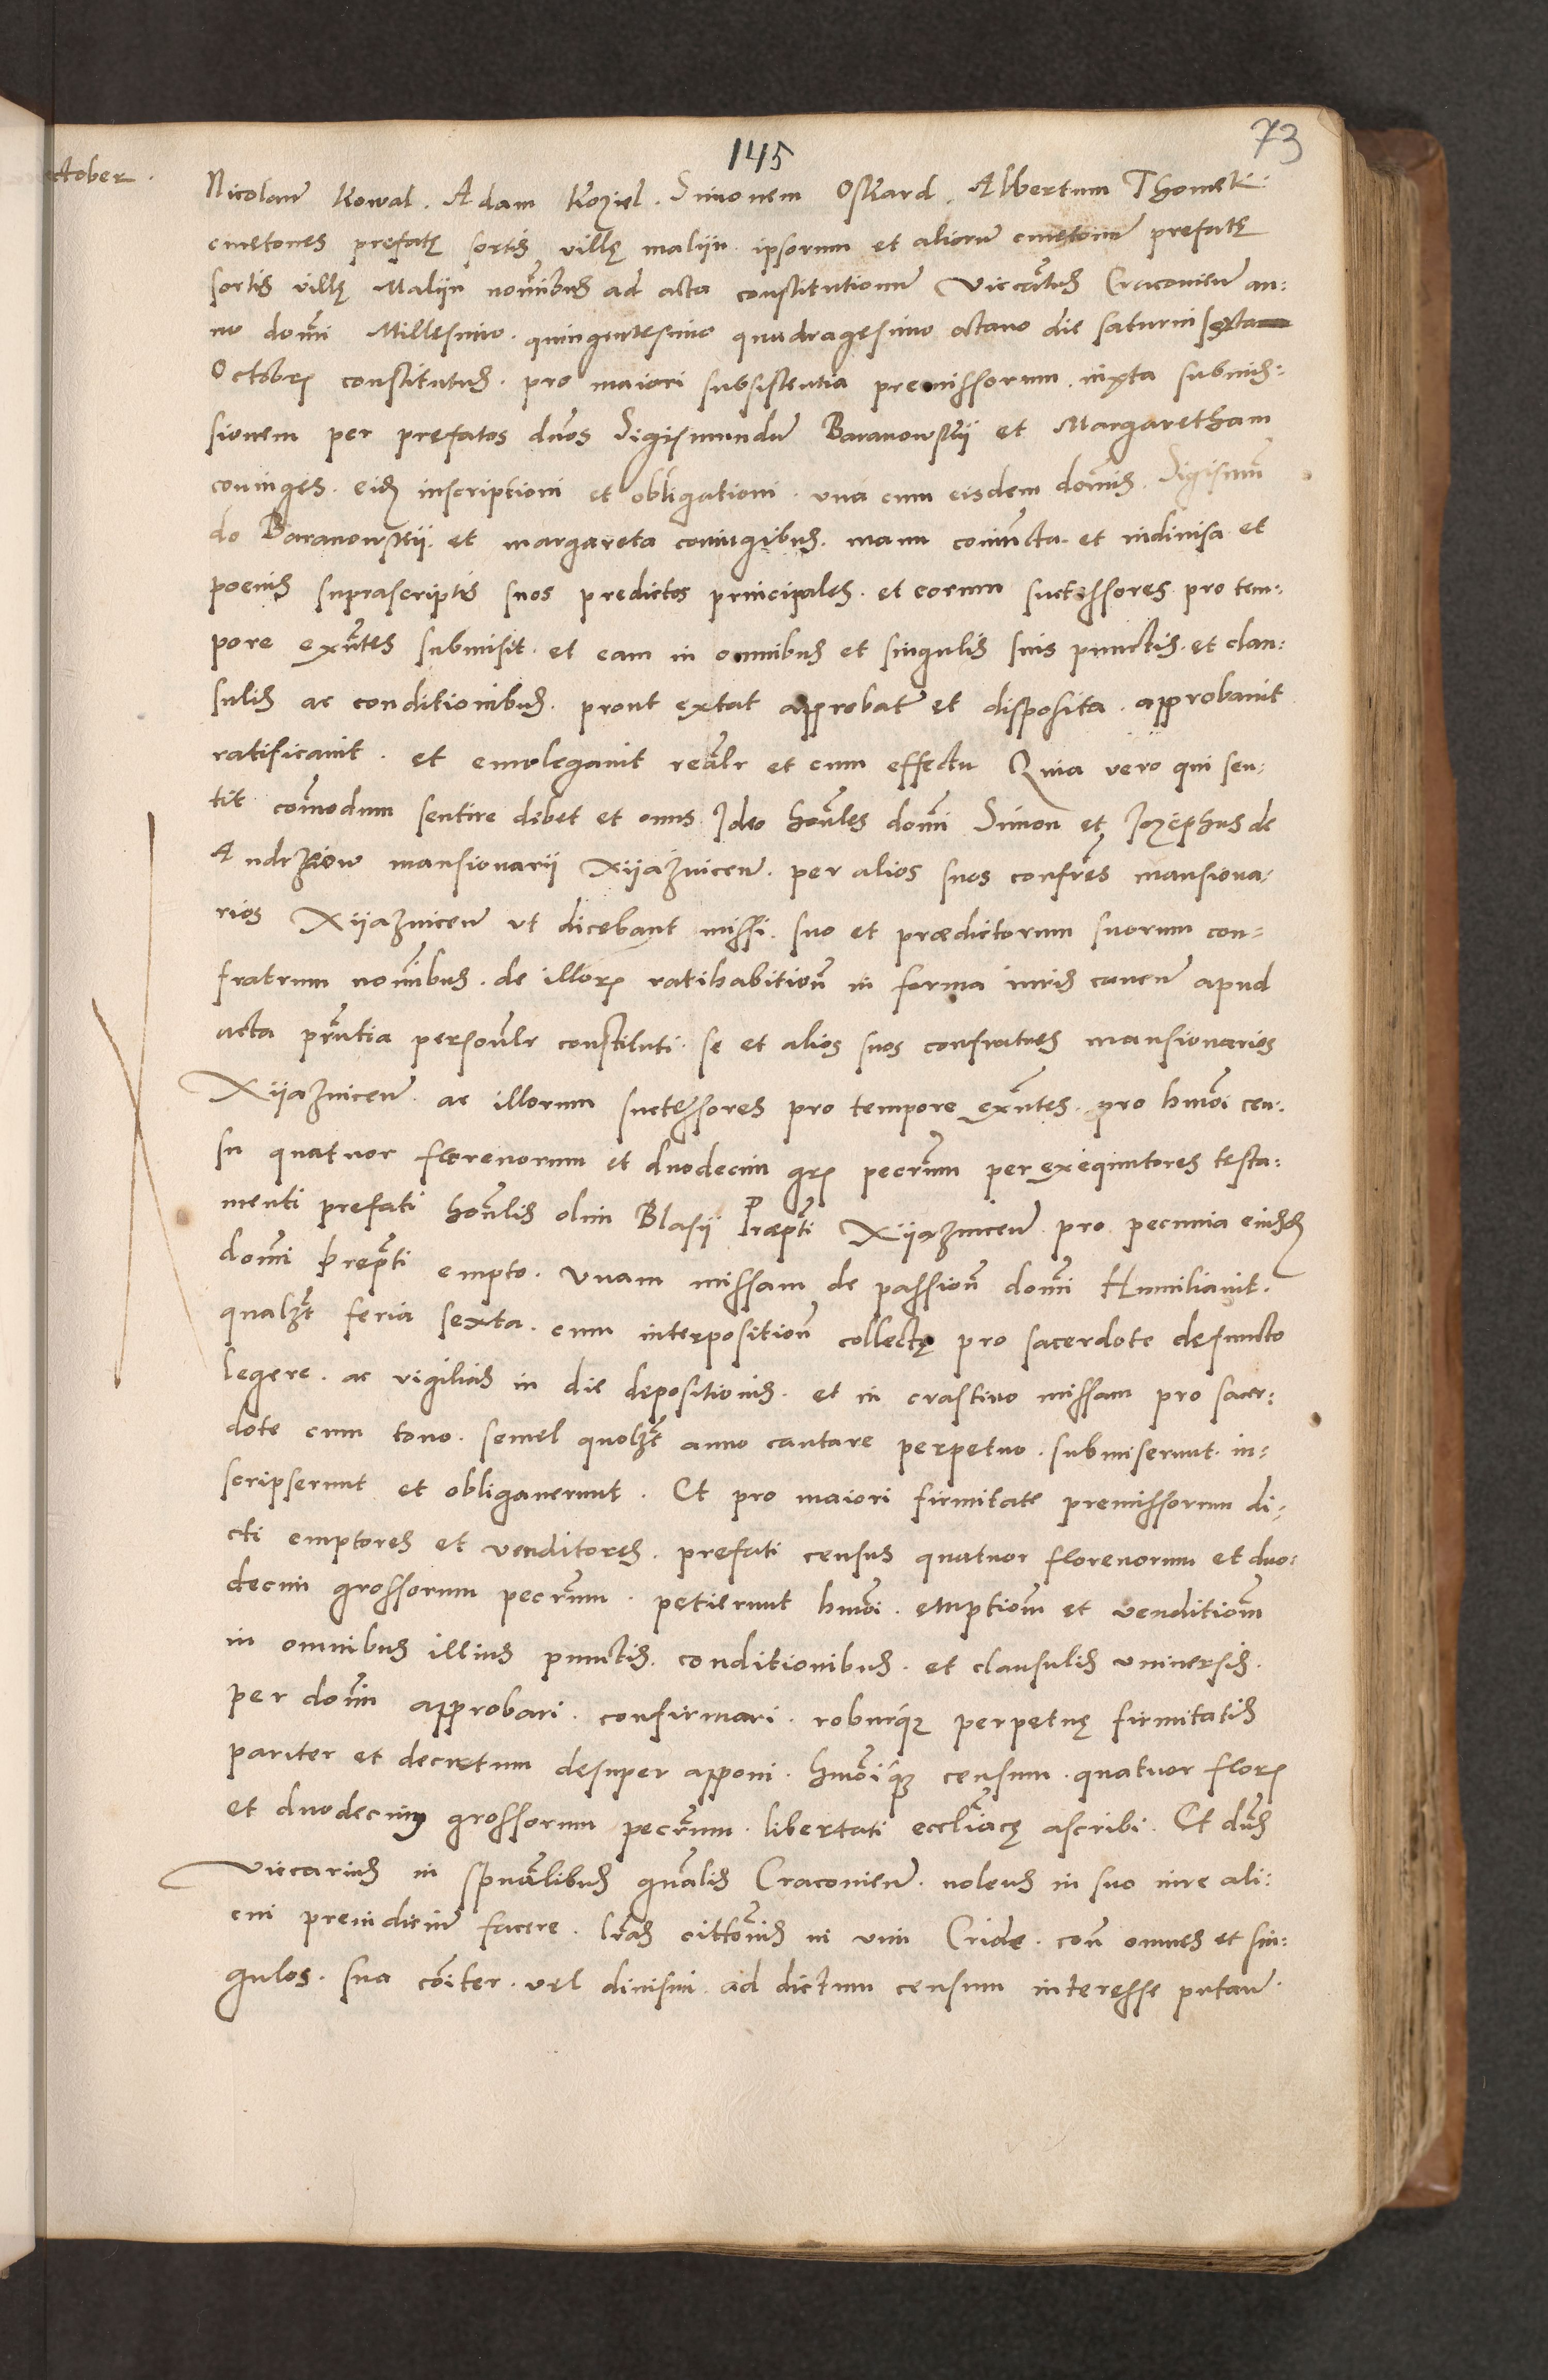 145
73
ctober.
Nicolaum Kowal. Adam Koziel. Simonem Oskard. Albertum Thomek
cmetones prefatę sortis villę maliin ipsorum et aliorum cmetonum prefatę
sortis villę Maliin nominibus ad acta constitutionum Vicariatus Cracovien an:
no domini Millesimo. quingentesimo quadragesimo octavo die saturni sexta
Octobris constitutus. pro maiori subsistentia premissorum. iuxta submis:
sionem per prefatos dnos Sigismundum Baranowskii et Margaretham
coniuges. eidem inscriptioni et obligationi. una cum eisdem dominis. Sigismun
do Baranowskii. et margareta coniugibus. manu coniuncta. et indivisa et
poenis suprascriptis suos predictos principales. et eorum successores pro tem:
pore exntes submisit. et eam in omnibus et singulis suis punctis. et clau:
sulis ac conditionibus. prout extat approbata et disposita. approbavit
ratificavit. et emolegavit realr et cum effectu Quia vero qui sen:
tit commodum sentire debet et onus Ideo honles domini Simon et Jozephus de
Andrziow mansionarii Xiiaznicen. per alios suos confres mansiona:
rios Xiiaznicen ut dicebant missi. suo et prædictorum suorum con:
fratrum nominibus. de illorum ratihabitione in forma iuris caven apud
acta prntia personlr constituti. se et alios suos confratres mansionarios
Xiiaznicen. ac illorum successores pro tempore exntes. pro hmoi cen:
su quatuor florenorum et duodecim grs pecrum per exequutores testa:
menti prefati honlis olim Blasii Præpti Xiiaznicen pro pecunia eiusdem
domini prepti empto. Unam missam de passione domini Humiliavit.
qualzt feria sexta. cum interpositione collectę pro sacerdote defuncto
legere. ac vigilias in die depositionis. et in crastino missam pro sacer:
dote cum tono. semel quolzt anno cantare perpetuo. submiserunt. in:
scripserunt et obligaverunt. Et pro maiori firmitate premissorum di:
cti emptores et venditores. prefati census quatuor florenorum et duo:
decim grossorum pecrum. petierunt hmoi. emptionem et venditionem
in omnibus illius punctis. conditionibus. et clausulis universis.
per domin approbari. confirmari. roburque perpetuę firmitatis
pariter et decretum desuper apponi. hmoique censum. quatuor flor
et duodecim grossorum pecrum. libertati eccliacę ascribi. Et dns
Viccarius in spualibus gnalis Cracovien. nolens in suo iure ali:
cui preiudicium facere. lras cittonis in vim Cride. con omnes et sin:
gulos. sua coiter. vel divisim. ad dictum censum interesse putan.